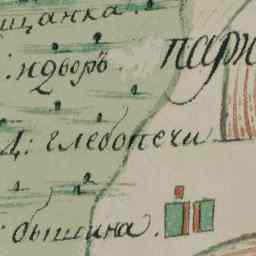 щанка.
: ндворъ.
парн
Д: глебопечи
: бышина.